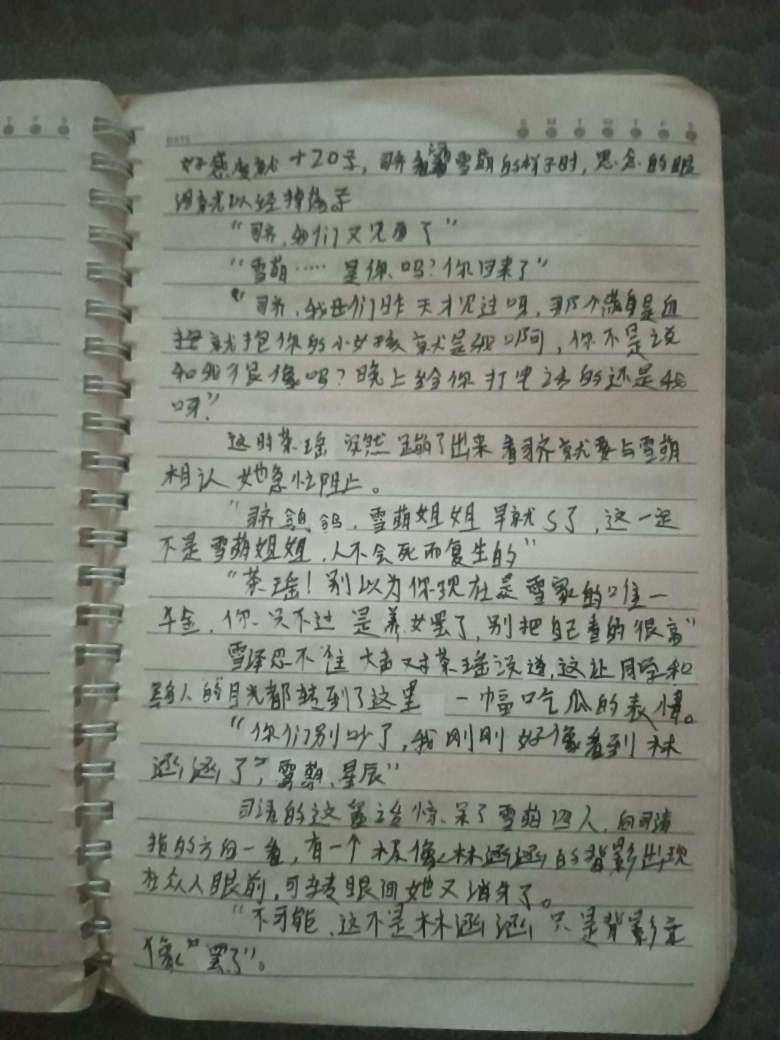 DATE S M T W T F S
好感度就+20了,司齐看着雪萌的样子时,思念的眼
泪就以经掉落了
“司齐,我们又见面了”
“雪萌……是你吗?你回来了”
“司齐,我们昨天才见过呀,那个满身是血
抱就抱你的小女孩就是我啊,你不是说
和我很像吗?晚上给你打电话的还是我
呀”
这时茶瑶突然蹦了出来看司齐就要与雪萌
相认她急忙阻止。
“司齐鸽鸽,雪萌姐姐早就S了,这一定
不是雪萌姐姐,人不会死而复生的”
“茶瑶!别以为你现在是雪家的唯一
千金,你只不过是养女罢了,别把自己看的很高”
雪泽忍不住大声对茶瑶说道,这让同学和
人的目光都转到了这里 一幅吃瓜的表情。
“你们别吵了,我刚刚好像看到林
涵涵了,雪萌、星辰”
司诺的这番话惊呆了雪萌四人,向司诺
指的方向一看,有一个极像林涵涵的背影出现
在众人眼前,可转眼间她又消失了。
“不可能,这不是林涵涵只是背影
像罢了”。